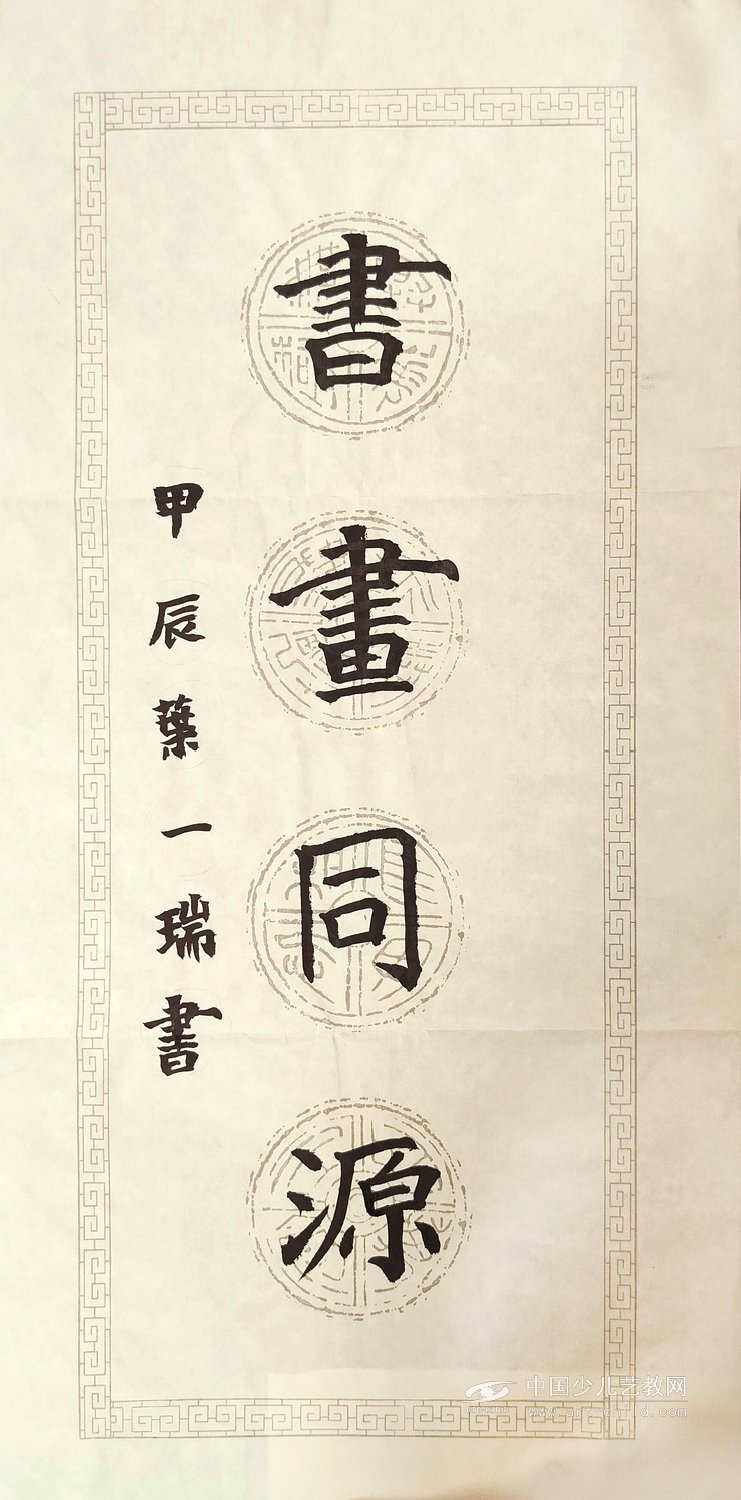 書畫同源
甲辰葉一瑞書
中国少儿艺教网
www.art-child.com